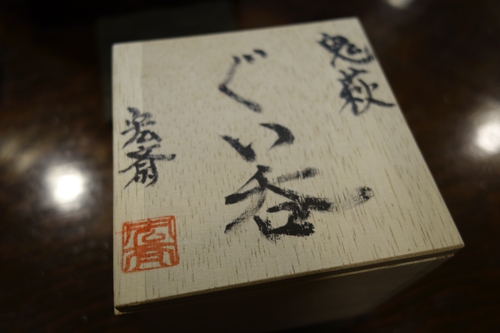 鬼萩
ぐい呑
宏斎